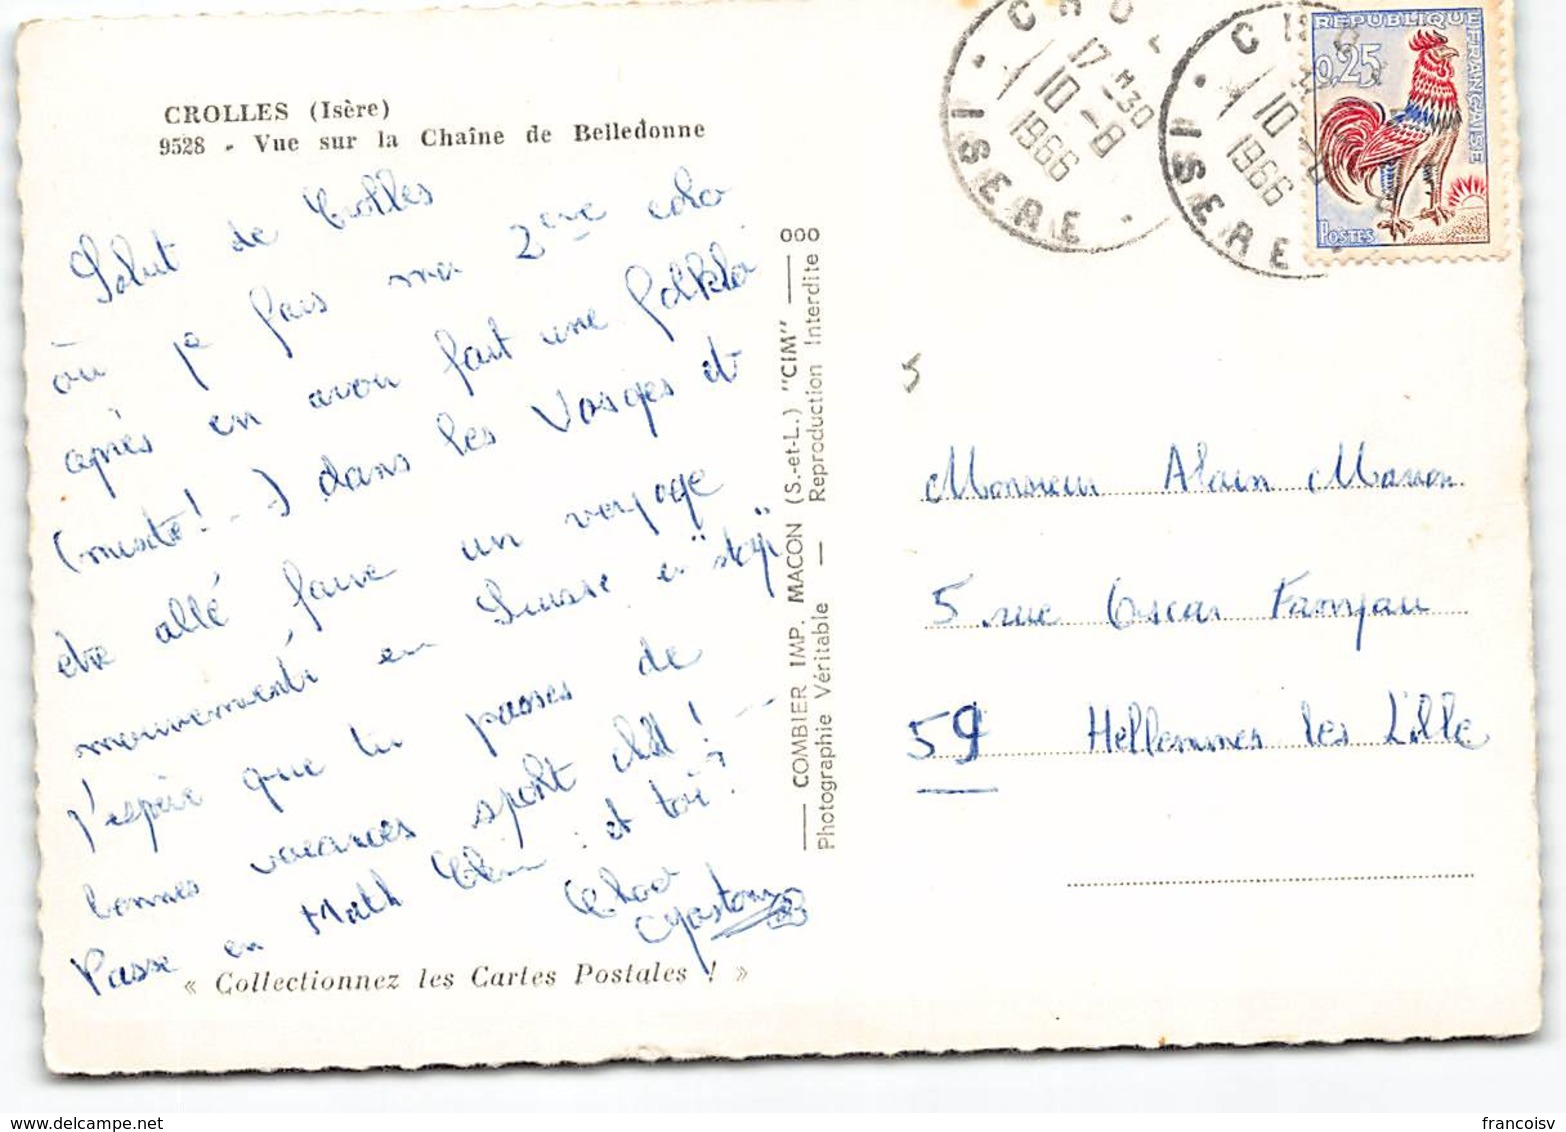 CROLLES (Isère)
9528 - Vue sur la Chaîne de Belledonne
Salut de Crolles
où je fais ma 2ème colo
après en avoir fait une folklo
(mixte! - -) dans les Vosges et
être allé faire un voyage
mouvementé en Suisse en
J'espère que tu passes de
bonnes vacances sport !--
Passe en Math Elém : et toi?
Ciao
Gaston
« Collectionnez les Cartes Postales ! »
000
COMBIER IMP. MACON (S.-et-L.) "CIM"
Photographie Véritable — Reproduction Interdite
CROL
17H30
10-8
1966
ISERE
CRO
10 -8
1966
ISERE
REPUBLIQUE FRANÇAISE
0,25
POSTES
5
Monsieur Alain Manon
5 rue Oscar Fanyau
59 Hellemmes les Lille
francoisv